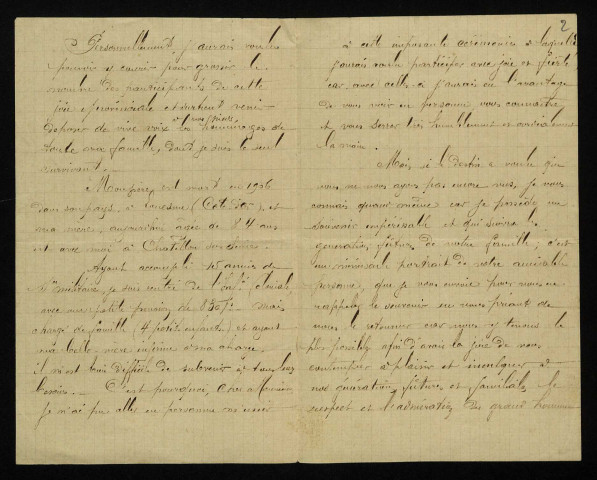 2
Personnellement, j'aurais voulu
pouvoir y courir pour grossir le
nombre des participants de cette
joie et surtout venir
déposer de vive voix les hommages de
toute ma famille, dont je suis le seul
survivant.
Mon père est mort en 1906
dans son pays, à (Côte d'Or), et
ma mère, aujourd'hui agée de 84 ans
est avec moi à Chatillon sur Seine.
Ayant accompli 15 années de
militaire, je suis retiré de
avec une petite pension de 850 f. mais
chargé de famille (4 petits enfants) et ayant
ma belle-mère infirme à ma charge,
il m'est bien difficile de subvenir à tous les
besoins. C'est pourquoi, Cher Monsieur
Je n'ai pu aller en personne
à cette imposante cérémonie à laquelle
j'aurais voulu participer avec joie et fierté
car avec celle-ci j'aurais eu l'avantage
de vous voir en personne, vous connaître,
et vous serrer très humblement et cordialement
la main.
Mais, si le Destin a voulu que
vous ne nous ayez pas encore vus, je vous
connais quand même car je possède un
souvenir impérissable et qui suivra les
générations futures de notre famille; c'est
un portrait de votre aimable
personne, que je vous envoie pour vous en
rappeler le souvenir en vous priant de
nous le retourner car nous y tenons le
plus possible, afin d'avoir la joie de vous
contempler à plaisir et inculquer à
nos générations futures et familiales le
respect et l'admiration du grand homme